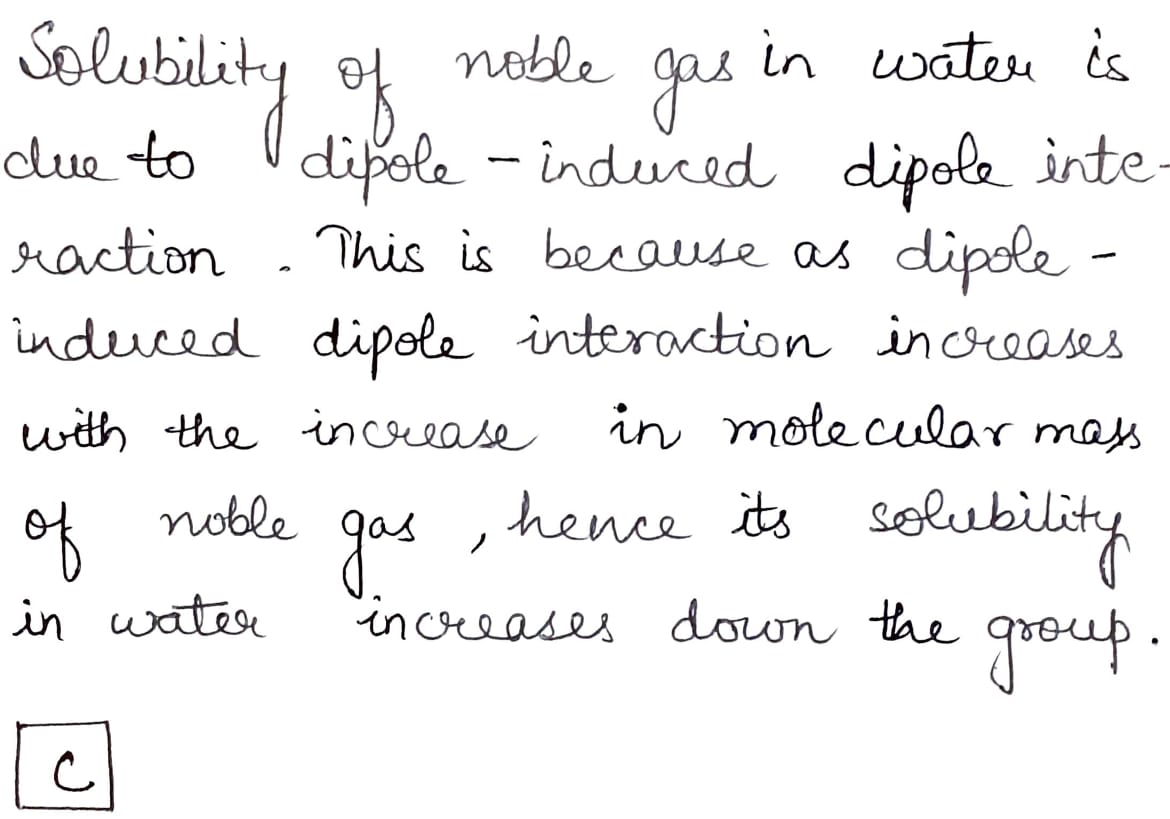 Solubility of noble gas in water is
due to dipole - induced dipole inte-
raction. This is because as dipole -
induced dipole interaction increases
with the increase in molecular mass
of noble gas, hence its solubility
in water increases down the group.
C